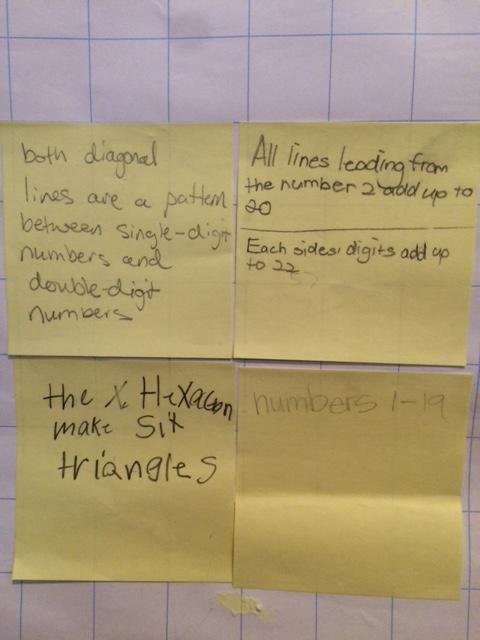 both diagonal
lines are a pattern
between single-digit
numbers and
double-digit
numbers
All lines leading from
the number 2 add up to
20
Each sides' digits add up
to 22
the X HeXagon
make Six
triangles
numbers 1-19